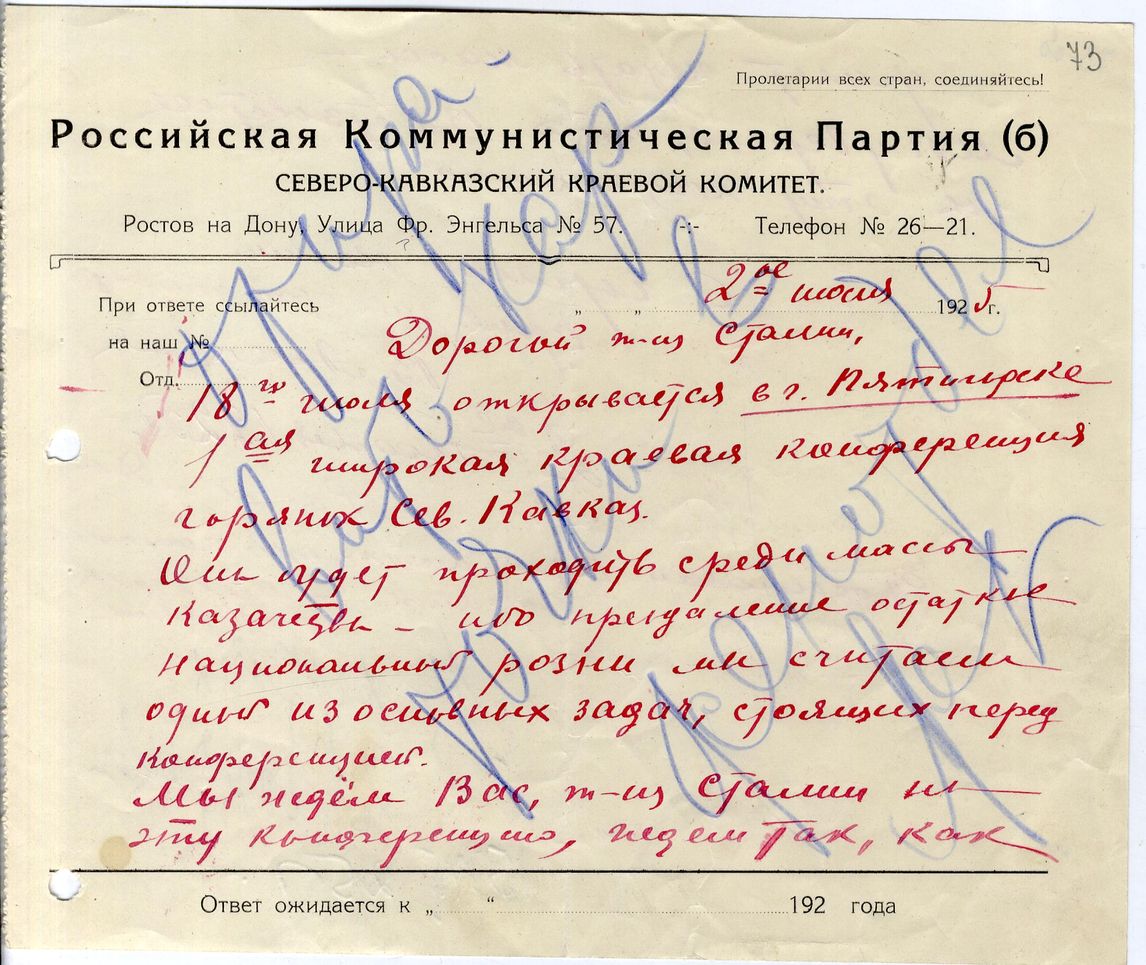 73
Пролетарии всех стран, соединяйтесь!
Российская Коммунистическая Партия (б)
СЕВЕРО-КАВКАЗСКИЙ КРАЕВОЙ КОМИТЕТ.
Ростов на Дону, Улица Фр. Энгельса № 57. -:- Телефон № 26—21.
2ое июля 1925 г.
При ответе ссылайтесь
на наш №
Дорогой т-щ Сталин,
Отд.
18го июля открывается в г. Пятигорске
1ая широкая краевая конференция
горянок Сев. Кавказ.
Она будет проходить среди массы
казачества – ибо преодоление остатков
национальной розни мы считаем
одной из основных задач, стоящих перед
конференцией.
Мы ждём Вас, т-щ Сталин на
эту конференцию, ждем так, как
Ответ ожидается к „ “ 192 года